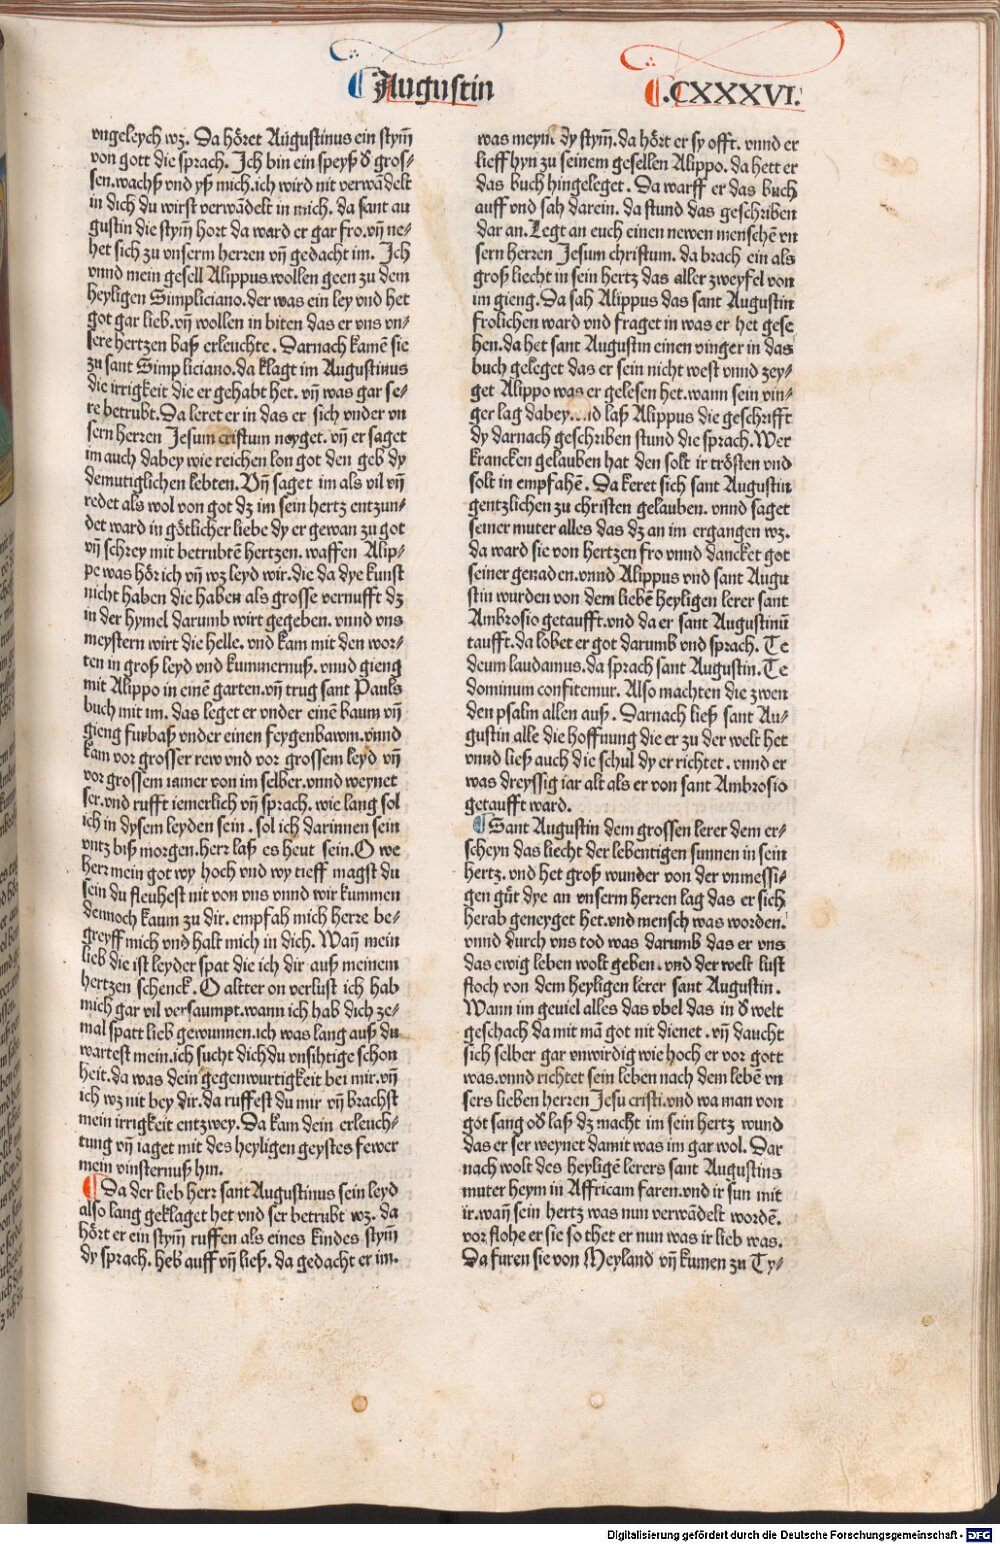 Augustin
.CXXXVI.
vngeleych wz. Da höret Augustinus ein stym̄
von gott die sprach. Ich bin ein speyß d̓ gros⸗
sen.wachß vnd yß mich.ich wird nit verwādelt
in dich du wirst verwādelt in mich. da sant au
gustin die stym̄ hort da ward er gar fro.vn̄ ne⸗
het sich zu vnserm herren vn̄ gedacht im. Ich
vnnd mein gesell Alippus wollen geen zu dem
heyligen Simpliciano.der was ein ley vnd het
got gar lieb.vn̄ wollen in biten das er vns vn⸗
sere hertzen baß erleuchte. Darnach kamē sie
zu sant Simpliciano.da klagt im Augustinus
die irrigkeit die er gehabt het. vn̄ was gar se⸗
re betrubt.Da leret er in das er sich vnder vn
sern herren Jesum cristum neyget. vn̄ er saget
im auch dabey wie reichen lon got den geb dy
demutiglichen lebten. Vn̄ saget im als vil vn̄
redet als wol von got dz im sein hertz entzun⸗
det ward in götlicher liebe dy er gewan zu got
vn̄ schrey mit betrubtē hertzen. waffen Alip⸗
pe was hör ich vn̄ wz leyd wir.die da dye kunst
nicht haben die haben als grosse vernufft dz
in der hymel darumb wirt gegeben. vnnd vns
meystern wirt die helle. vnd kam mit den wor⸗
ten in groß leyd vnd kummernuß. vnnd gieng
mit Alippo in einē garten.vn̄ trug sant Pauls
buch mit im. das leget er vnder einē baum vn̄
gieng furbaß vnder einen feygenbawm.vnnd
kam vor grosser rew vnd vor grossem leyd vn̄
vor grossem iamer von im selber.vnnd weynet
ser.vnd rufft iemerlich vn̄ sprach. wie lang sol
ich in dysem leyden sein. sol ich darinnen sein
vntz biß morgen.herr laß es heut sein.O we
herr mein got wy hoch vnd wy tieff magst du
sein du fleuhest nit von vns vnnd wir kummen
dennoch kaum zu dir. empfah mich herre be⸗
greyff mich vnd halt mich in dich. Wan̄ mein
lieb die ist leyder spat die ich dir auß meinem
hertzen schenck. O altter on verlust ich hab
mich gar vil versaumpt.wann ich hab dich ze⸗
mal spatt lieb gewunnen.ich was lang auß du
wartest mein.ich sucht dich du vnsihtige schon
heit.da was dein gegenwurtigkeit bei mir.vn̄
ich wz nit bey dir.da ruffest du mir vn̄ brachst
mein irrigkeit entzwey. Da kam dein erleuch⸗
tung vn̄ iaget mit des heyligen geystes fewer
mein vinsternuß hin.
Da der lieb herr sant Augustinus sein leyd
also lang geklaget het vnd ser betrubt wz. da
hört er ein stym̄ ruffen als eines kindes stym̄
dy sprach. heb auff vn̄ ließ. da gedacht er im.
was meynt dy stym̄.da hört er sy offt. vnnd er
lieff hyn zu seinem gesellen Alippo. da hett er
das buch hingeleget. Da warff er das buch
auff vnd sah darein. da stund das geschriben
dar an.Legt an euch einen newen menschē vn
sern herren Jesum christum. da brach ein als
groß liecht in sein hertz das aller zweyfel von
im gieng.Da sah Alippus das sant Augustin
frolichen ward vnd fraget in was er het gese
hen.da het sant Augustin einen vinger in das
buch geleget das er sein nicht west vnnd zey⸗
get Alippo was er gelesen het.wann sein vin⸗
ger lag dabey. laß Alippus die geschrifft
dy darnach geschriben stund die sprach.Wer
krancken gelauben hat den solt ir trösten vnd
solt in empfahē. Da keret sich sant Augustin
gentzlichen zu christen gelauben. vnnd saget
seiner muter alles das dz an im ergangen wz.
da ward sie von hertzen fro vnnd dancket got
seiner genaden.vnnd Alippus vnd sant Augu
stin wurden von dem liebē heyligen lerer sant
Ambrosio getaufft.vnd da er sant Augustinū
taufft.da lobet er got darumb vnd sprach. Te
deum laudamus.da sprach sant Augustin.Te
dominum confitemur. Also machten die zwen
den psalm allen auß. Darnach ließ sant Au⸗
gustin alle die hoffnung die er zu der welt het
vnnd ließ auch die schul dy er richtet. vnnd er
was dreyssig iar alt als er von sant Ambrosio
getaufft ward.
Sant Augustin dem grossen lerer dem er⸗
scheyn das liecht der lebentigen sunnen in sein
hertz. vnd het groß wunder von der vnmessi⸗
gen gut dye an vnserm herren lag das er sich
herab geneyget het.vnd mensch was worden.
vnnd durch vns tod was darumb das er vns
das ewig leben wolt geben. vnd der welt lust
floch von dem heyligen lerer sant Augustin.
Wann im geviel alles das vbel das in d̓ welt
geschach da mit mā got nit dienet. vn̄ daucht
sich selber gar vnwirdig wie hoch er vor gott
was.vnnd richtet sein leben nach dem lebē vn
sers lieben herren Jesu cristi.vnd wa man von
got sang od̓ laß dz macht im sein hertz wund
das er ser weynet damit was im gar wol. Dar
nach wolt des heyligē lerers sant Augustins
muter heym in Affricam faren.vnd ir sun mit
ir.wan̄ sein hertz was nun verwādelt wordē.
vor flohe er sie so thet er nun was ir lieb was.
Da furen sie von Meyland vn̄ kumen zu Ty⸗
Digitalisierung gefördert durch die Deutsche Forschungsgemeinschaft - DFG